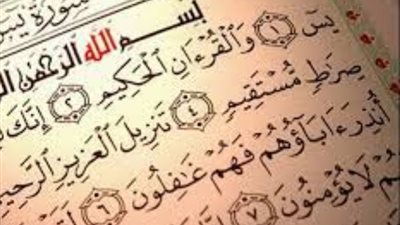 سورة يس
بسم الله الرحمن
يسٓ ۝١ وَٱلْقُرْءَانِ ٱلْحَكِيمِ ۝٢ إِنَّكَ
صِرَٰطٍ مُّسْتَقِيمٍ ۝٤ تَنزِيلَ ٱلْعَزِيزِ ٱلرَّحِيمِ
أُنذِرَ ءَابَآؤُهُمْ فَهُمْ غَٰفِلُونَ ۝٦ لَقَدْ
لَا يُؤْمِنُونَ ۝٧ إِنَّا